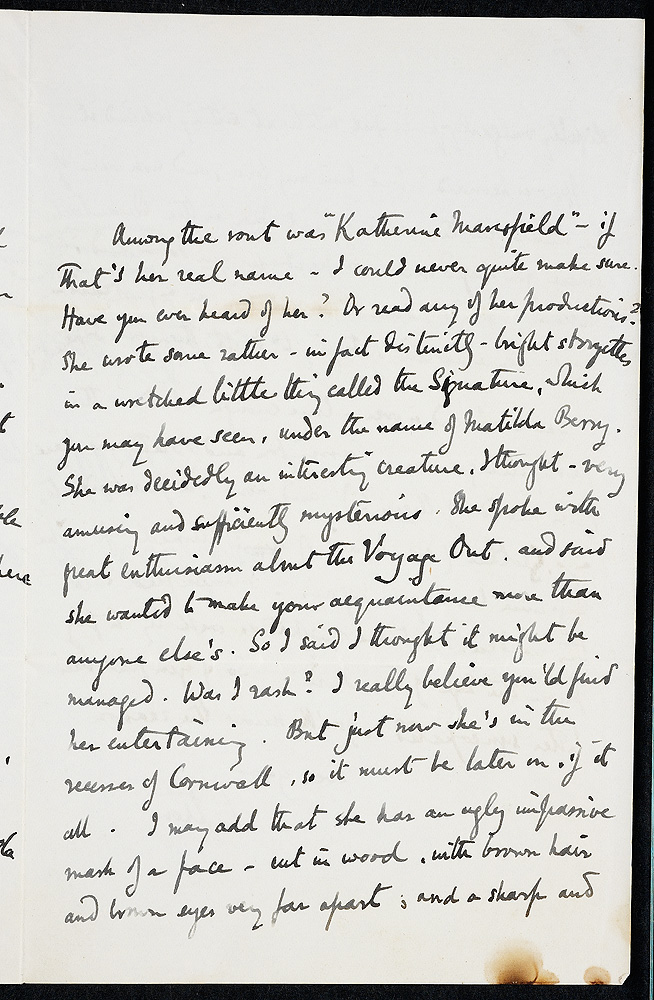 Among the rout was "Katherine Mansfield" - if
that's her real name - I could never quite make sure.
Have you ever heard of her? Or read any of her productions?
She wrote some rather - in fact distinctly - bright storyettes
in a wretched little thing called the Signature, which
you may have seen, under the name of Matilda Berry.
She was decidedly an interesting creature, I thought - very
amusing and sufficiently mysterious. She spoke with
great enthusiasm about the Voyage Out, and said
she wanted to make your acquaintance more than
anyone else's. So I said I thought it might be
managed. Was I rash? I really believe you'ld find
her entertaining. But just now she's in the
recesses of Cornwall, so it must be later on, if at
all. I may add that she has an ugly impassive
mask of a face - cut in wood, with brown hair
and brown eyes very far apart; and a sharp and